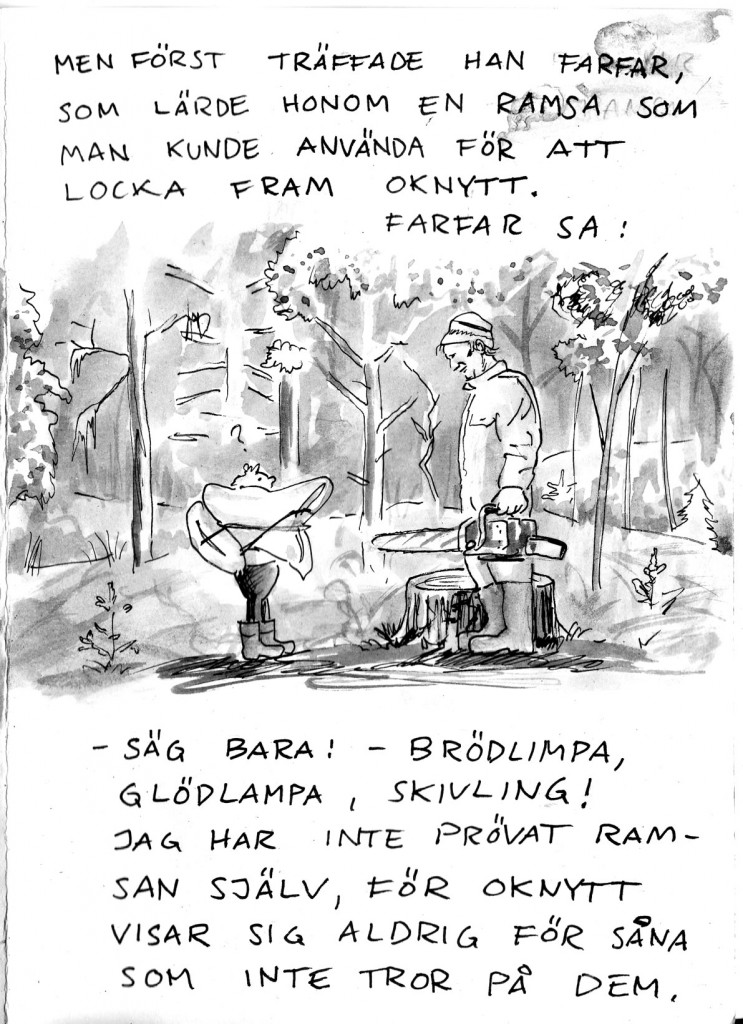 MEN FÖRST TRÄFFADE HAN FARFAR,
SOM LÄRDE HONOM EN RAMSA SOM
MAN KUNDE ANVÄNDA FÖR ATT
LOCKA FRAM OKNYTT.
FARFAR SA:
?
- SÄG BARA! - BRÖDLIMPA,
GLÖDLAMPA, SKIVLING!
JAG HAR INTE PRÖVAT RAM-
SAN SJÄLV, FÖR OKNYTT
VISAR SIG ALDRIG FÖR SÅNA
SOM INTE TROR PÅ DEM.